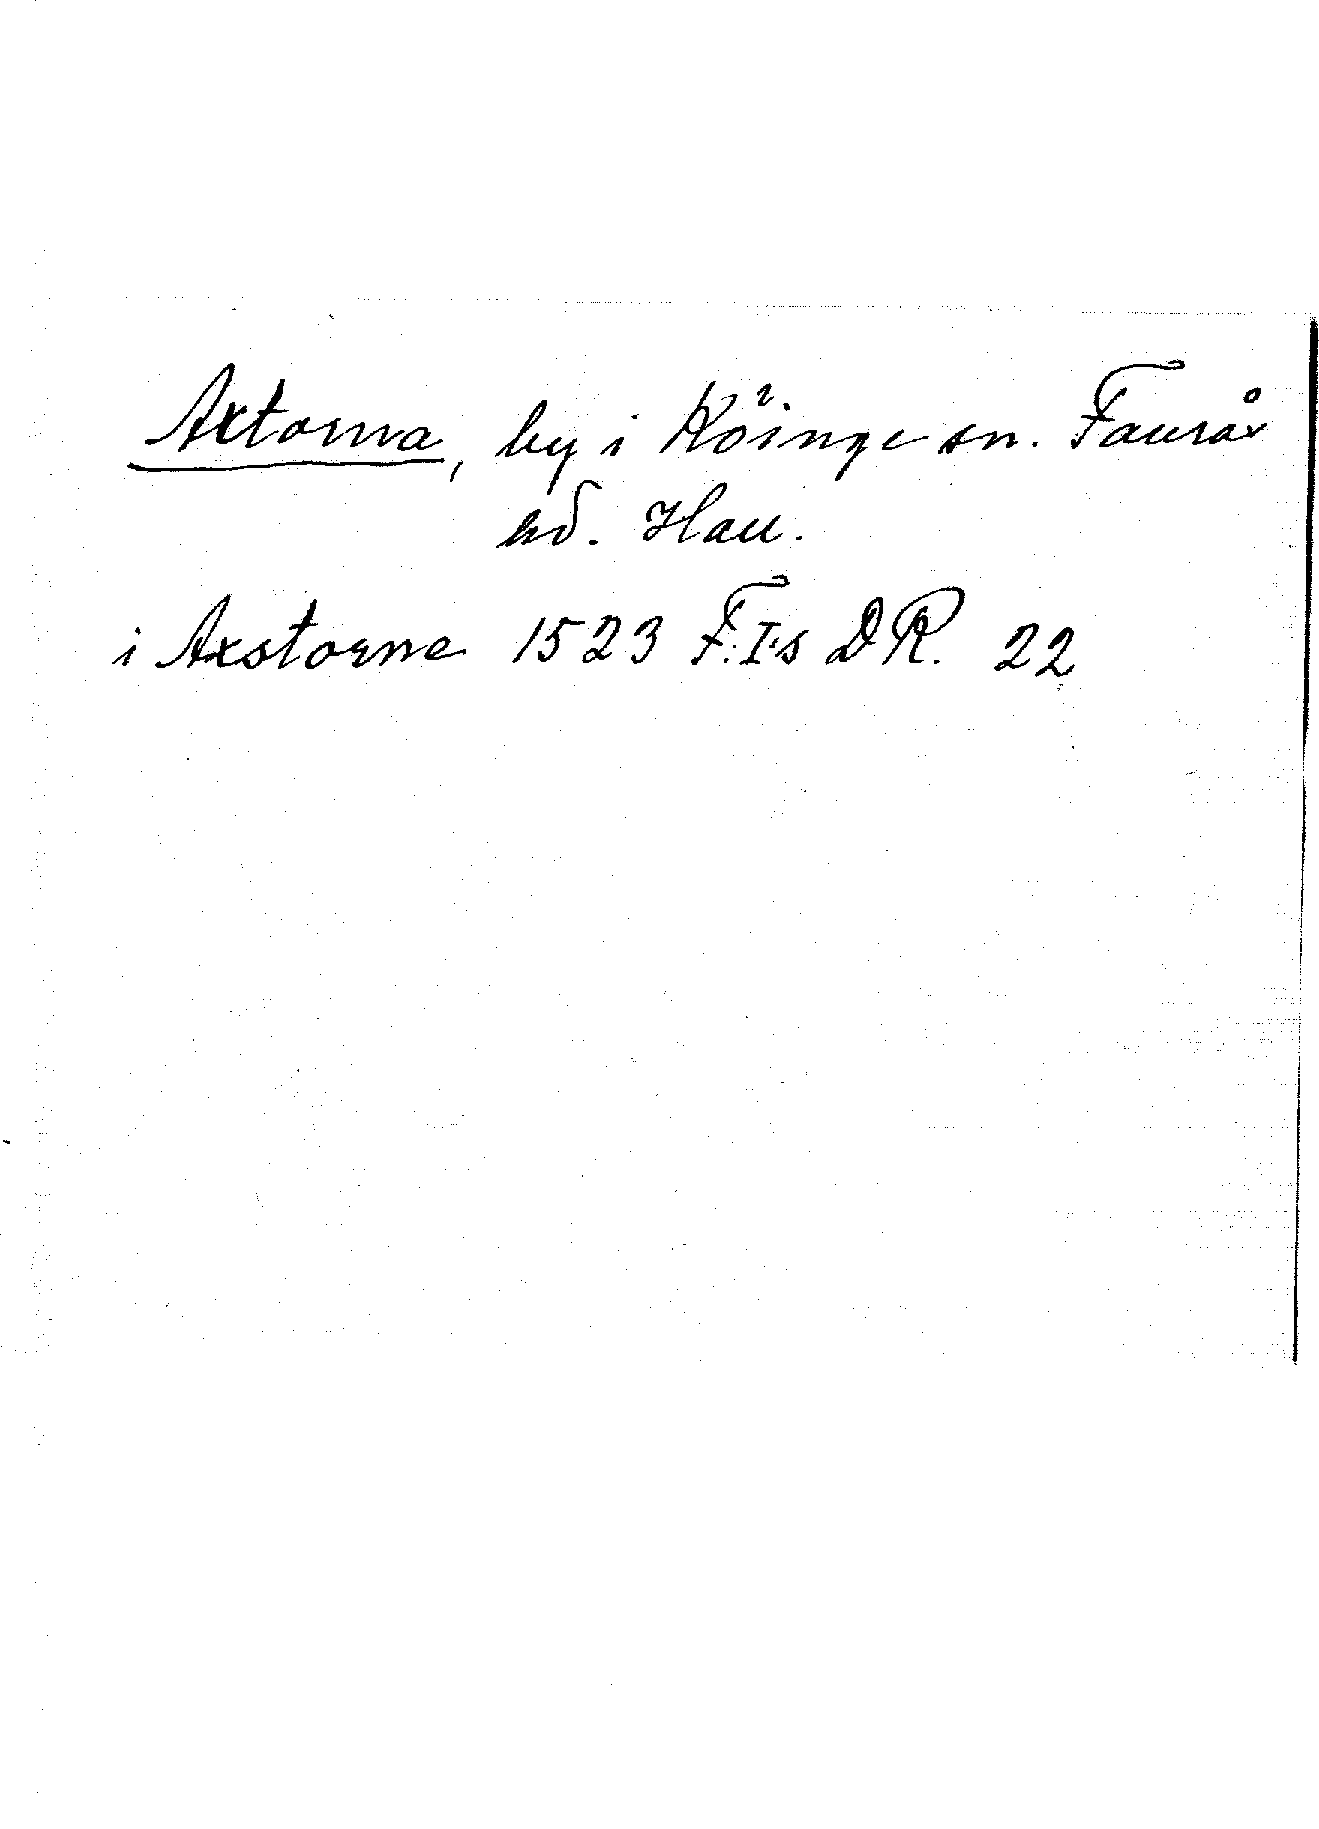 Axtorna, by i Köinge sn. Faurås
hd. Hall.
i Axstorne 1523 F.I's DR. 22